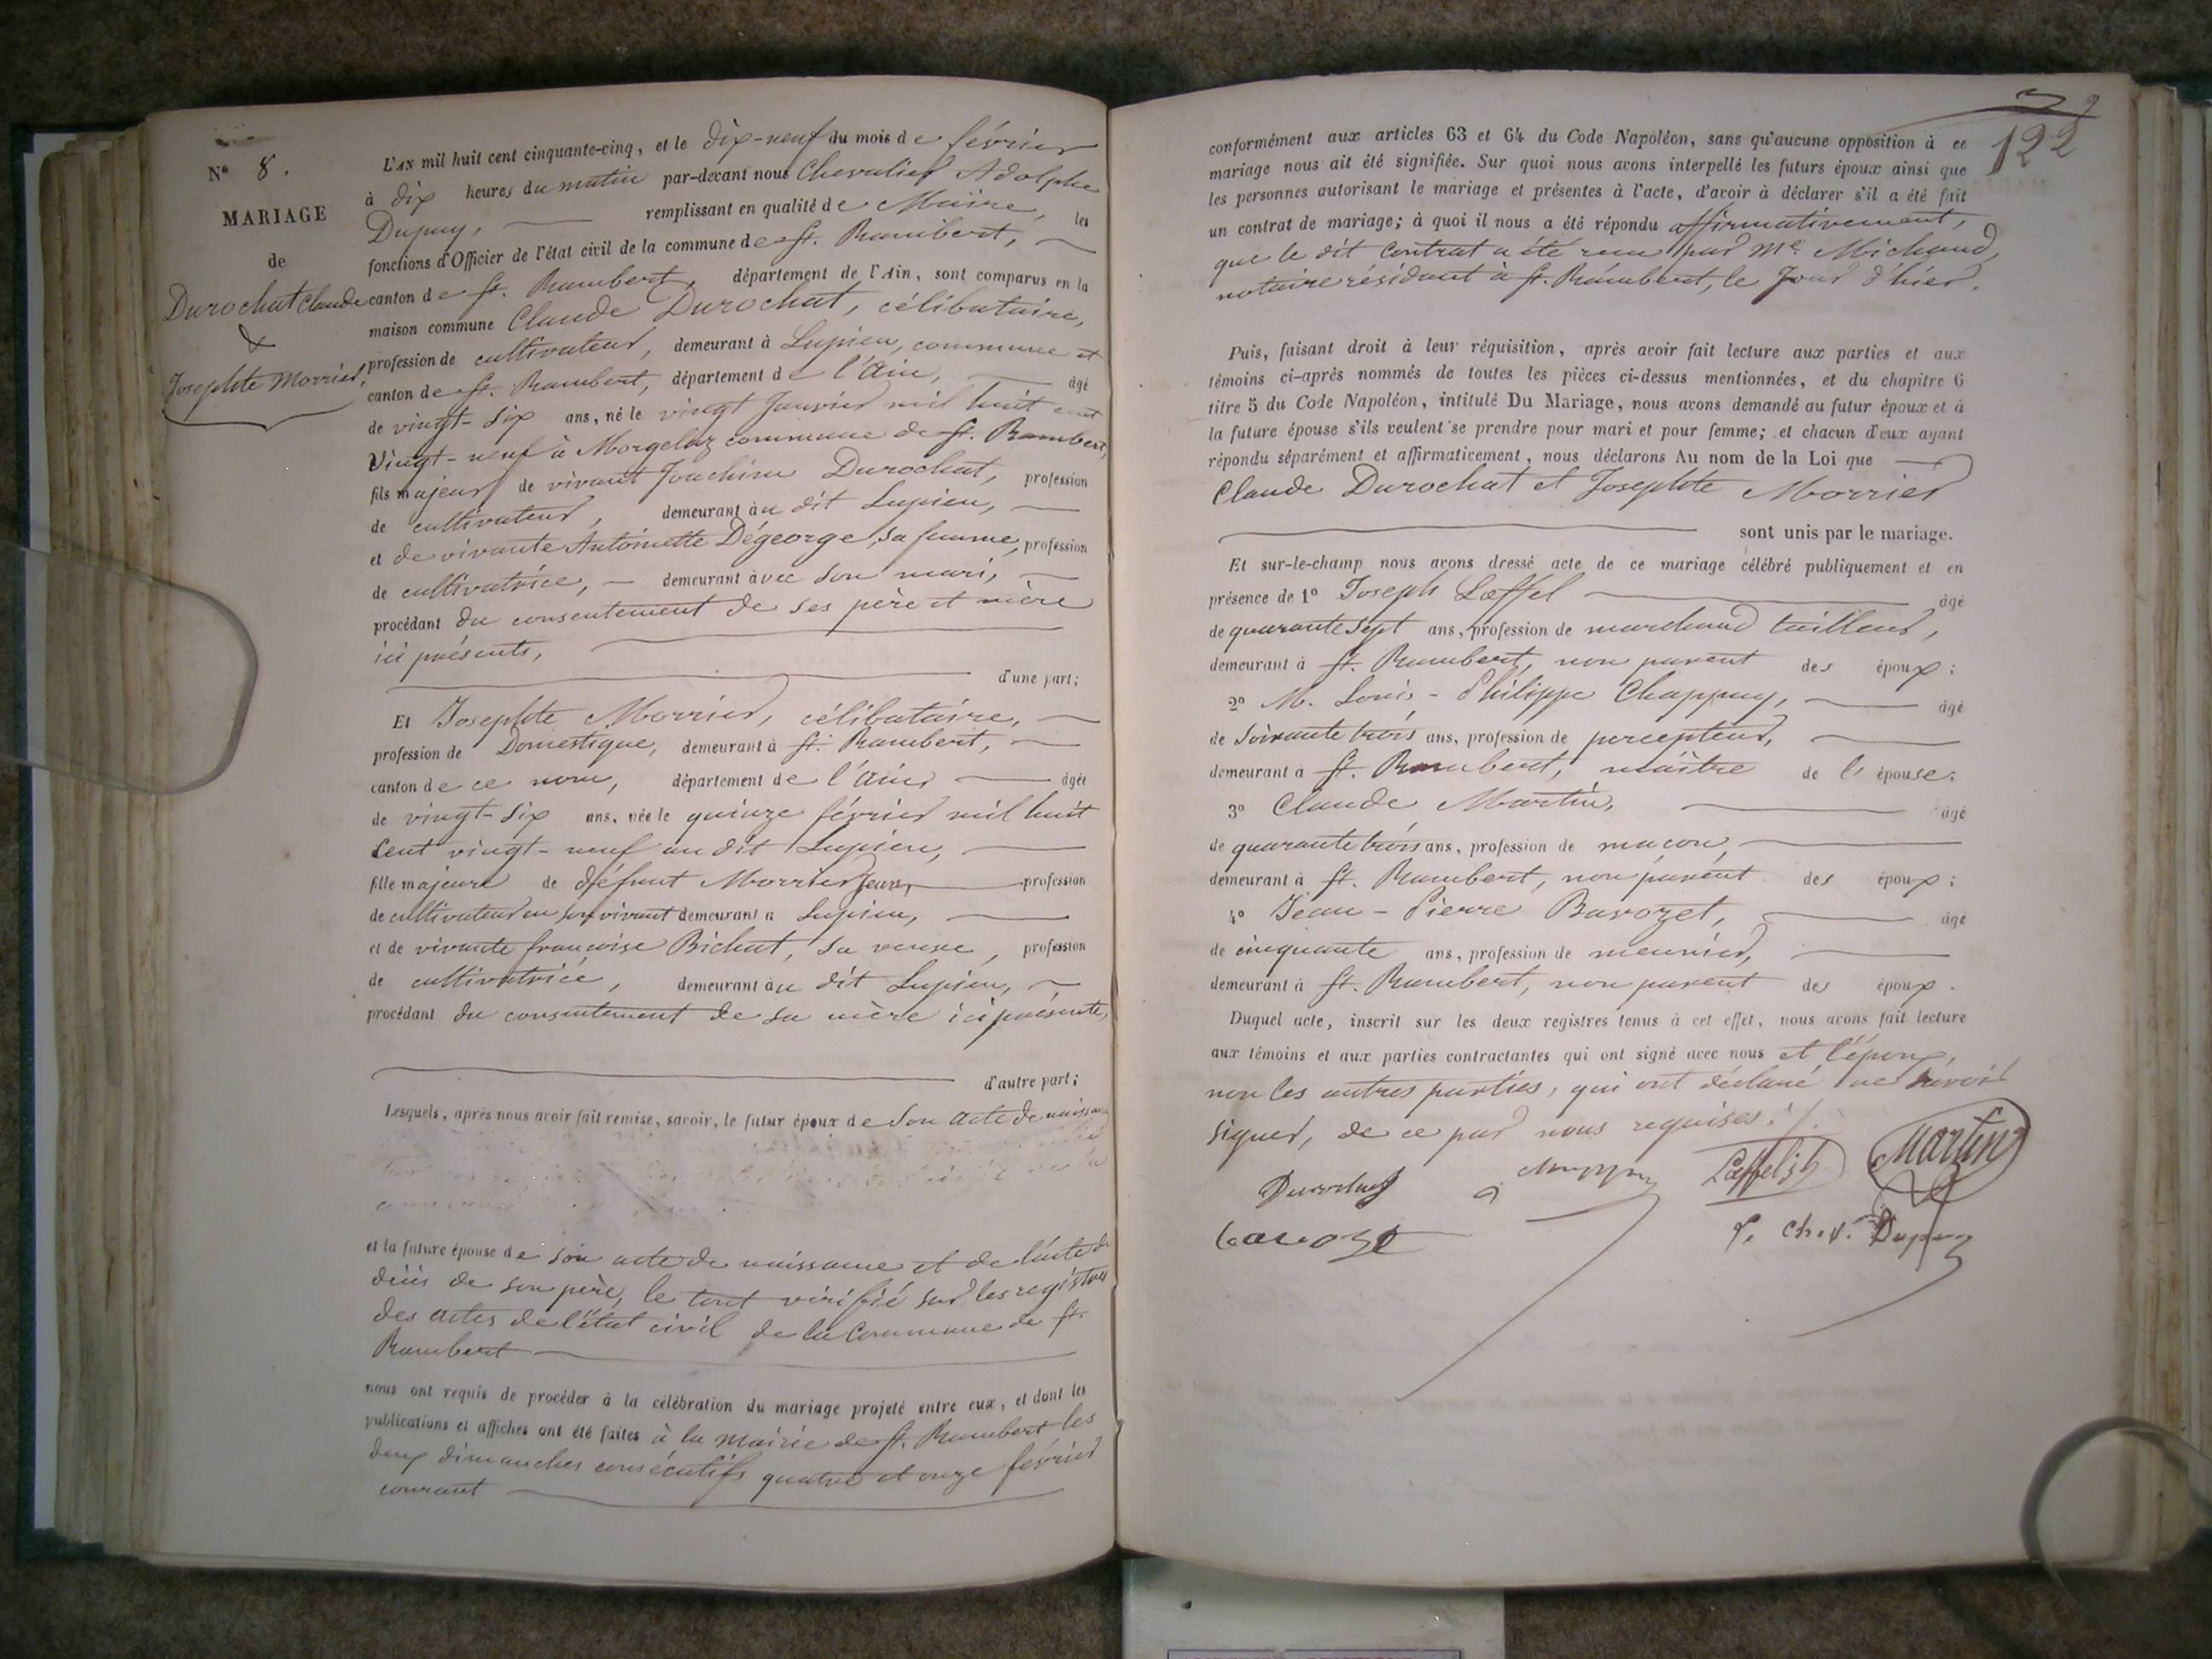 Nº 8.
MARIAGE
de
Durochat Claude
&
Josephte Morrier,
L'AN mil huit cent cinquante-cinq, et le dix-neuf du mois de février
à dix heures du matin par-devant nous Chevalier Adolphe
Dupuy, remplissant en qualité de Maire, les
fonctions d'Officier de l'état civil de la commune de St. Rambert,
canton de St. Rambert, département de l'Ain, sont comparus en la
maison commune Claude Durochat, célibataire,
profession de cultivateur, demeurant à Lupieu, commune et
canton de St. Rambert, département de l'Ain, âgé
de vingt-six ans, né le vingt Janvier mil huit cent
vingt-neuf à Morgelaz commune de St. Rambert,
fils majeur de vivant Joachim Durochat, profession
de cultivateur, demeurant au dit Lupieu,
et de vivante Antoinette Dégeorge, sa femme, profession
de cultivatrice, demeurant avec son mari,
procédant du consentement de ses père et mère
ici présents,
d'une part;
Et Josephte Morrier, célibataire,
profession de Domestique, demeurant à St. Rambert,
canton de ce nom, département de l'Ain, âgée
de vingt-six ans, née le quinze février mil huit
cent vingt-neuf au dit Lupieu,
fille majeure de défunt Morrier Jean, profession
de cultivateur en son vivant demeurant à Lupieu,
et de vivante françoise Bichat, sa veuve, profession
de cultivatrice, demeurant au dit Lupieu,
procédant du consentement de sa mère ici présente,
d'autre part;
Lesquels, après nous avoir fait remise, savoir, le futur époux de son acte de naissance
et la future épouse de son acte de naissance et de l'acte de
décès de son père, le tout vérifié sur les registres
des actes de l'état civil de la Commune de St.
Rambert
nous ont requis de procéder à la célébration du mariage projeté entre eux, et dont les
publications et affiches ont été faites à la Mairie de St. Rambert les
deux dimanches consécutifs quatre et onze février
courant
122
conformément aux articles 63 et 64 du Code Napoléon, sans qu'aucune opposition à ce
mariage nous ait été signifiée. Sur quoi nous avons interpellé les futurs époux ainsi que
les personnes autorisant le mariage et présentes à l'acte, d'avoir à déclarer s'il a été fait
un contrat de mariage; à quoi il nous a été répondu affirmativement,
que le dit Contrat a été reçu par Me. Michaud,
notaire résidant à St. Rambert, le jour d'hier.
Puis, faisant droit à leur réquisition, après avoir fait lecture aux parties et aux
témoins ci-après nommés de toutes les pièces ci-dessus mentionnées, et du chapitre 6
titre 5 du Code Napoléon, intitulé Du Mariage, nous avons demandé au futur époux et à
la future épouse s'ils veulent se prendre pour mari et pour femme; et chacun d'eux ayant
répondu séparément et affirmativement, nous déclarons Au nom de la Loi que
Claude Durochat et Josephte Morrier
sont unis par le mariage.
Et sur-le-champ nous avons dressé acte de ce mariage célébré publiquement et en
présence de 1º Joseph Lœffel âgé
de quarante sept ans, profession de marchand tailleur,
demeurant à St. Rambert, non parent des époux;
2º M. Louis-Philippe Chappuy, âgé
de soixante trois ans, profession de percepteur,
demeurant à St. Rambert, maître de l'épouse;
3º Claude Martin, âgé
de quarante trois ans, profession de maçon,
demeurant à St. Rambert, non parent des époux;
4º Jean-Pierre Bavozet, âgé
de cinquante ans, profession de meunier,
demeurant à St. Rambert, non parent des époux.
Duquel acte, inscrit sur les deux registres tenus à cet effet, nous avons fait lecture
aux témoins et aux parties contractantes qui ont signé avec nous et l'époux,
non les autres parties, qui ont déclaré ne savoir
signer, de ce par nous requises./.
Durochat Lœffel Martin
Bavozet Ch. A. Dupuy